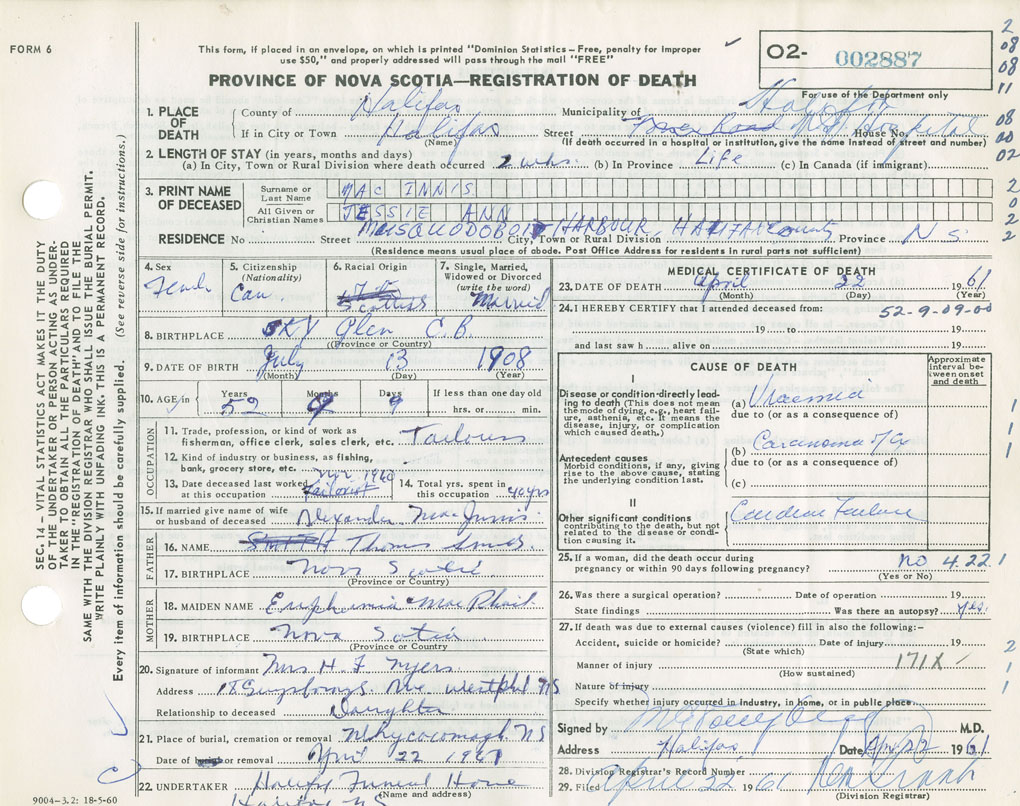 FORM 6
This form, if placed in an envelope, on which is printed "Dominion Statistics – Free, penalty for improper
use $50," and properly addressed will pass through the mail "FREE"
PROVINCE OF NOVA SCOTIA—REGISTRATION OF DEATH
O2- 002887
For use of the Department only
2
08
08
11
08
00
02
2
0
2
2
1. PLACE OF DEATH
County of Halifax Municipality of Halifax
If in City or Town Halifax Street House No. Hospital
(Name) (If death occurred in a hospital or institution, give the name instead of street and number)
2. LENGTH OF STAY (in years, months and days)
(a) In City, Town or Rural Division where death occurred 2 wks. (b) In Province Life (c) In Canada (if immigrant)
3. PRINT NAME OF DECEASED
Surname or Last Name MAC INNIS
All Given or Christian Names JESSIE ANN
RESIDENCE No Street MUSQUODOBOIT HARBOUR, HALIFAX County City, Town or Rural Division Province N S.
(Residence means usual place of abode. Post Office Address for residents in rural parts not sufficient)
4. Sex
5. Citizenship (Nationality) Can.
6. Racial Origin
7. Single, Married, Widowed or Divorced (write the word) Married
8. BIRTHPLACE SKY Glen C.B
(Province or Country)
9. DATE OF BIRTH July 13 1908
(Month) (Day) (Year)
10. AGE in Years Months Days If less than one day old
52 9 9 hrs. or min.
OCCUPATION
11. Trade, profession, or kind of work as
fisherman, office clerk, sales clerk, etc.
12. Kind of industry or business, as fishing,
bank, grocery store, etc.
13. Date deceased last worked at this occupation 1960
14. Total yrs. spent in this occupation 40 yrs
15. If married give name of wife or husband of deceased Alexander MacInnis
FATHER
16. NAME SMITH Thomas
17. BIRTHPLACE Nova Scotia
(Province or Country)
MOTHER
18. MAIDEN NAME Euphemia MacPhail
19. BIRTHPLACE Nova Scotia
(Province or Country)
20. Signature of informant Mrs. H F Myers
Address 18 Guysborough Ave Westphal NS
Relationship to deceased Daughter
21. Place of burial, cremation or removal Whycocomagh, N S
Date of burial or removal April 22 1961
22. UNDERTAKER Halifax Funeral Home
(Name and address)
Halifax NS
9004-3.2: 18-5-60
SEC. 14 – VITAL STATISTICS ACT MAKES IT THE DUTY
OF THE UNDERTAKER OR PERSON ACTING AS UNDER-
TAKER TO OBTAIN ALL THE PARTICULARS REQUIRED
IN THE "REGISTRATION OF DEATH" AND TO FILE THE
SAME WITH THE DIVISION REGISTRAR WHO SHALL ISSUE THE BURIAL PERMIT.
WRITE PLAINLY WITH UNFADING INK. THIS IS A PERMANENT RECORD.
Every item of information should be carefully supplied. (See reverse side for instructions.)
MEDICAL CERTIFICATE OF DEATH
23. DATE OF DEATH April 22 1961
(Month) (Day) (Year)
24. I HEREBY CERTIFY that I attended deceased from: 52-9-09-00
19 to 19
and last saw h alive on 19
CAUSE OF DEATH
Approximate interval between onset and death
I
Disease or condition directly lead-
ing to death (This does not mean
the mode of dying, e.g., heart fail-
ure, asthenia, etc. It means the
disease, injury, or complication
which caused death.)
(a) Uraemia
due to (or as a consequence of)
Antecedent causes
Morbid conditions, if any, giving
rise to the above cause, stating
the underlying condition last.
(b) Carcinoma of Cx
due to (or as a consequence of)
(c)
II
Other significant conditions
contributing to the death, but not
related to the disease or condi-
tion causing it.
Cardiac Failure
1
1
1
25. If a woman, did the death occur during
pregnancy or within 90 days following pregnancy? no 4.22.1
(Yes or No)
26. Was there a surgical operation? Date of operation 19
State findings Was there an autopsy? yes.
27. If death was due to external causes (violence) fill in also the following:–
Accident, suicide or homicide? Date of injury 19
(State which)
Manner of injury 171X
(How sustained)
Nature of injury
Specify whether injury occurred in industry, in home, or in public place
2
1
1
Signed by M.D.
Address Halifax Date Apr 22 1961
28. Division Registrar's Record Number
29. Filed April 22 1961
(Division Registrar)